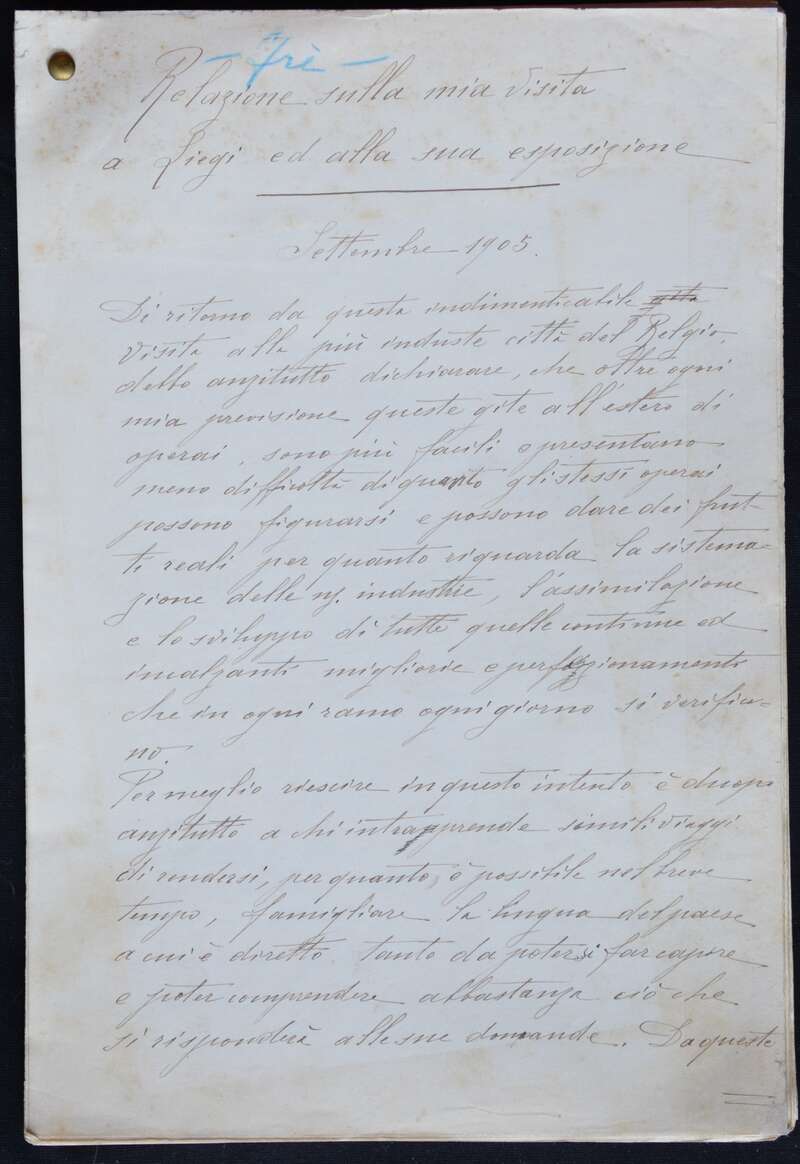 - Trè -
Relazione sulla mia visita
a Liegi ed alla sua esposizione
Settembre 1905.
Di ritorno da questa indimenticabile gita
visita alla più industre città del Belgio,
debbo anzitutto dichiarare, che oltre ogni
mia previsione queste gite all'estero di
operai, sono più facili e presentano
meno difficoltà di quanto gli stessi operai
possono figurarsi e possono dare dei frut-
ti reali per quanto riguarda la sistema-
zione delle ns. industrie, l'assimilazione
e lo sviluppo di tutte quelle continue ed
incalzanti migliorie e perfezionamenti
che in ogni ramo ogni giorno si verifica-
no.
Per meglio riescire in questo intento è duopo
anzitutto a chi intrapprende simili viaggi
di rendersi, per quanto, è possibile nel breve
tempo, famigliare la lingua del paese
a cui è diretto tanto da potersi far capire
e poter comprendere abbastanza ciò che
si risponderà alle sue domande. Da queste